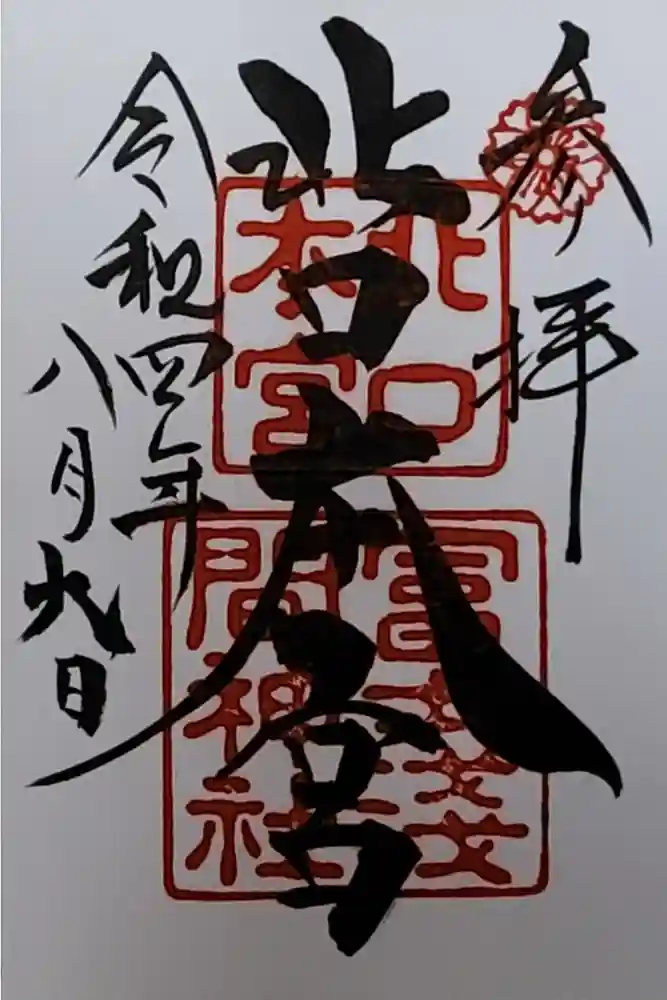 参拝
北口本宮
令和四年
八月九日
北口
本宮
冨士淺
間神社